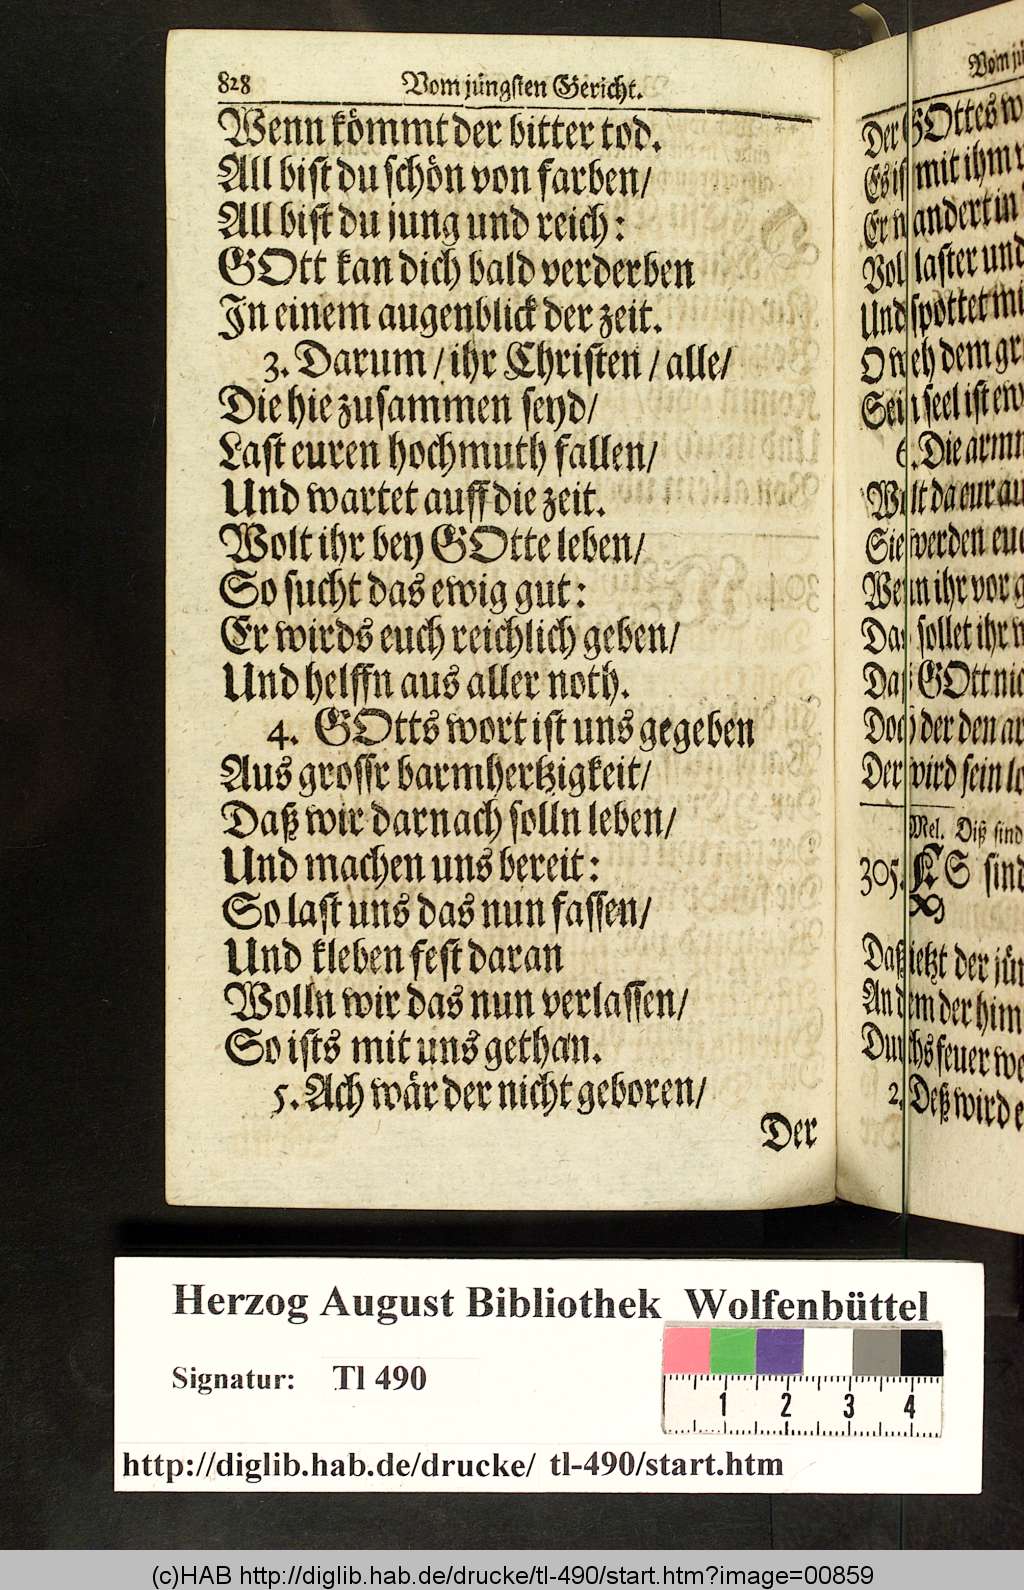 828 Vom jüngsten Gericht.
Wenn kömmt der bitter tod.
All bist du schön von farben/
All bist du jung und reich:
GOtt kan dich bald verderben
In einem augenblick der zeit.
3. Darum / ihr Christen / alle/
Die hie zusammen seyd/
Last euren hochmuth fallen/
Und wartet auff die zeit.
Wolt ihr bey GOtte leben/
So sucht das ewig gut:
Er wirds euch reichlich geben/
Und helffn aus aller noth.
4. GOtts wort ist uns gegeben
Aus grossr barmhertzigkeit/
Daß wir darnach solln leben/
Und machen uns bereit:
So last uns das nun fassen/
Und kleben fest daran
Wolln wir das nun verlassen/
So ists mit uns gethan.
5. Ach wär der nicht geboren/
Der
Vom
Der GOttes
mit ihm
Er wandert in
Voll laster und
Und spottet
O weh dem
Sein seel ist
6. Die
da eur
Sie werden
Wenn ihr vor
Da sollet ihr
Daß GOtt
Doch der den
Der wird sein
Mel. Diß sind
305. ES sind
Daß ietzt der
An dem der
Durchs feuer
2. Deß wird
Herzog August Bibliothek Wolfenbüttel
Signatur: Tl 490
1 2 3 4
http://diglib.hab.de/drucke/ tl-490/start.htm
(c)HAB http://diglib.hab.de/drucke/tl-490/start.htm?image=00859